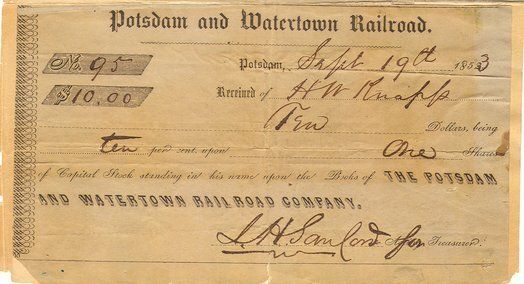 Potsdam and Watertown Railroad.
No. 95
Potsdam, Sept 19th 1853
$10.00
Received of H W Knapp
Ten Dollars, being
ten per cent. upon One Shares
of Capital Stock standing in his name upon the Books of THE POTSDAM
AND WATERTOWN RAILROAD COMPANY.
Treasurer.